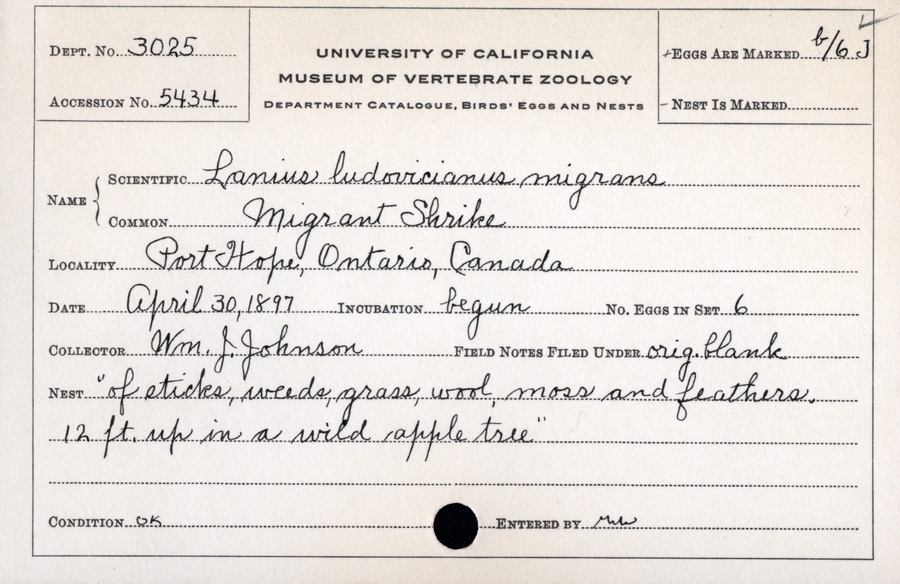 Dept. No. 3025
Accession No. 5434
UNIVERSITY OF CALIFORNIA
MUSEUM OF VERTEBRATE ZOOLOGY
Department Catalogue, Birds' Eggs and Nests
Eggs Are Marked b/6 J
Nest Is Marked
Name
Scientific Lanius ludovicianus migrans
Common Migrant Shrike
Locality Port Hope, Ontario, Canada
Date April 30, 1897 Incubation begun No. Eggs in Set 6
Collector Wm. J. Johnson Field Notes Filed Under orig. blank
Nest "of sticks, weeds, grass, wool, moss and feathers.
12 ft. up in a wild apple tree"
Condition OK Entered by